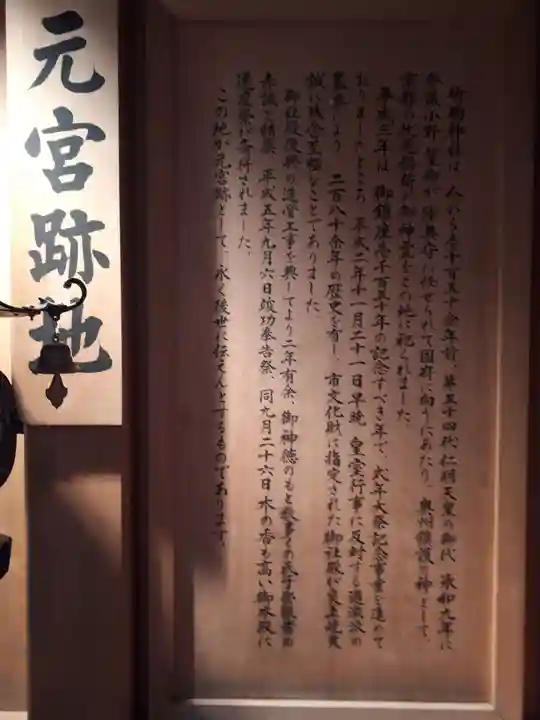 元宮跡地
竹駒神社は、今から壱千百五十余年前、第五十四代仁明天皇の御代、承和九年に
参議小野篁卿が陸奥守に任ぜられて国府に向うにあたり、奥州鎮護の神として、
京都の伏見稲荷の御神霊をこの地に祀られました。
平成三年は、御鎮座壱千百五十年の記念すべき年で、式年大祭記念事業を進めて
おりましたところ、平成二年十一月二十一日早暁、皇室行事に反対する過激派の
暴挙により、二百八十余年の歴史を有し、市文化財に指定された御社殿が炎上焼失
誠に残念至極なことでありました。
御社殿復興の造営工事を興してより二年有余、御神徳のもと数多くの氏子崇敬者の
赤誠が結集、平成五年九月六日竣功奉告祭、同九月二十六日木の香も高い御本殿に
遷座祭が斎行されました。
この地が元宮跡として、永く後世に伝えんとするものであります。